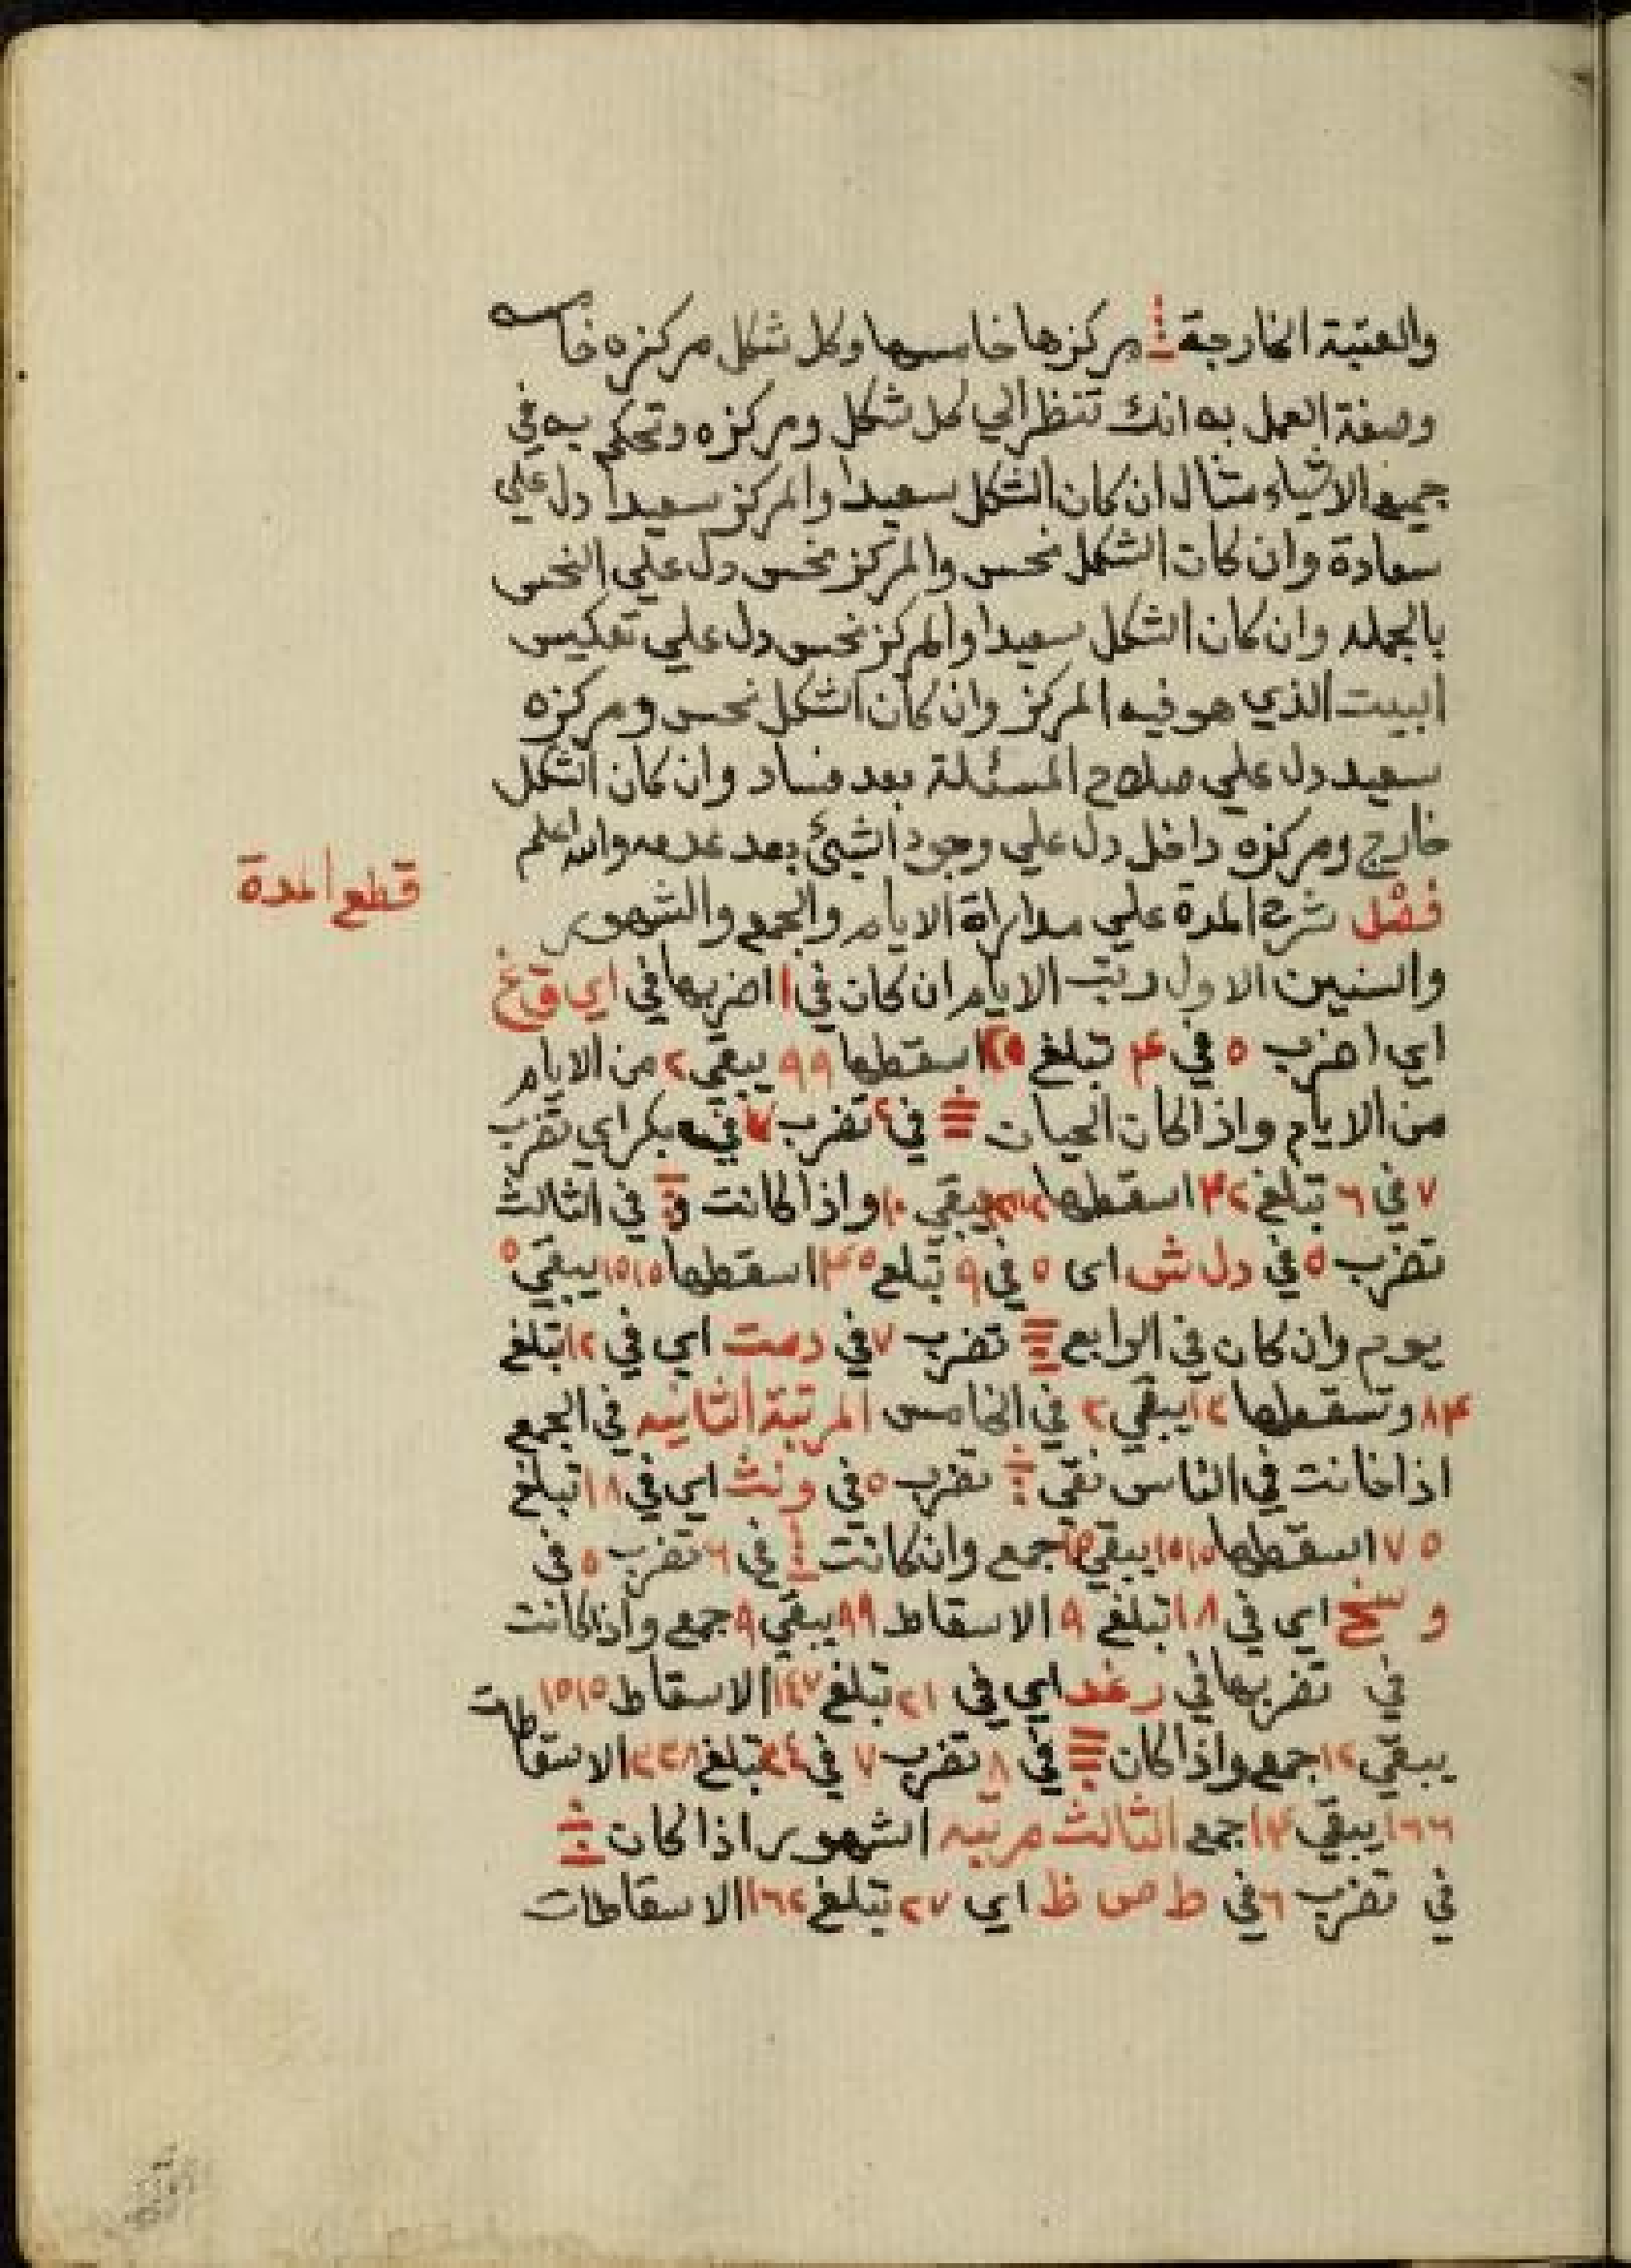 والعتبة الخارجة مركزها خامسها وكل شكل مركزه خامسه
وصفة العمل به انك تنظر الي كل شكل ومركزه وتحكم به في
جميع الاشياء مثال ان كان الشكل سعيدا والمركز سعيدا دل علي
سعادة وان كان الشكل نحس والمركز نحس دل علي النحس
بالجمله وان كان الشكل سعيدا والمركز نحس دل علي تعكيس
البيت الذي هو فيه المركز وان كان الشكل نحس ومركزه
سعيد دل علي صلاح المسئلة بعد فساد وان كان الشكل
خارج ومركزه داخل دل علي وجود الشئ بعد عدمه والله اعلم
قطع المدة
فصل شرح المدة علي مداراة الايام والجمع والشهور
والسنين الاول رتب الايام ان كان في ١ اضربها في اي
اي اضرب ٥ في ۴ تبلغ اسقطها ٩٩ يبقي ٢ من الايام
من الايام واذا كان الحيان في ٢ تضرب ٧ في بكر اي تضرب
٧ في ٦ تبلغ ۴٢ اسقطها يبقي واذا كانت في الثالث
تضرب ٥ في دل ش اى ٥ في ٩ تبلع ۴٥ اسقطها ١٥١٥ يبقي ٥
يوم وان كان في الرابع تضرب ٧ في دمت اي في ١٢ تبلغ
٨۴ وتسقطها ١٢ يبقي ٢ في الخامس المرتبة الثانيه في الجمع
اذا خانت في الناس نقي تضرب ٥ في ونث اي في ١٨ تبلغ
٧٥ اسقطها ١٥١٥ يبقي ١٥ جمع وان كانت في ٦ تضرب ٥ في
و سخ اي في ١٨ تبلغ ٩ الاسقاط ٩٩ يبقي ٩ جمع واذا كانت
في تضربها في رغد اي في ٢١ تبلغ ١٤٧ الاسقاط ١٥١٥
يبقي ١٢ جمع واذا كان في ٨ تضرب ٧ في ٢٤ تبلغ الاسقاطات
١٦٦ يبقي ١۴ جمع الثالث مرتبه الشهور اذا كان
في تضرب ٦ في ط ص ظ اي ٢٧ تبلغ ١٦٢ الاسقاطات